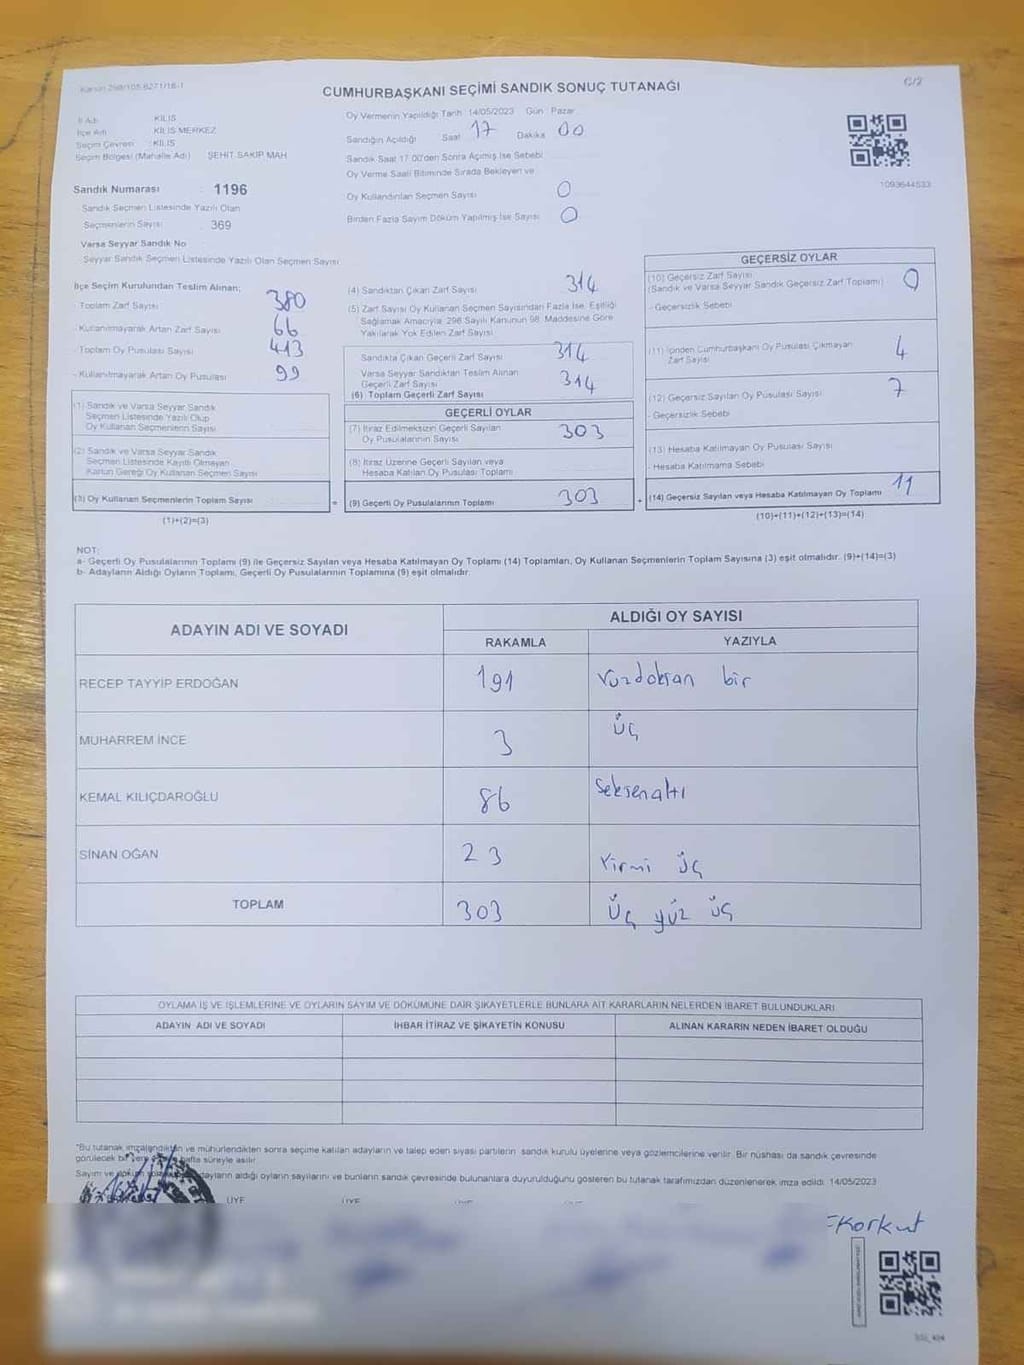 Kanun 298/105 6271/16-1
C/2
CUMHURBAŞKANI SEÇİMİ SANDIK SONUÇ TUTANAĞI
İl Adı KİLİS
İlçe Adı KİLİS MERKEZ
Seçim Çevresi : KİLİS
Seçim Bölgesi (Mahalle Adı) ŞEHİT SAKIP MAH
Sandık Numarası : 1196
Sandık Seçmen Listesinde Yazılı Olan
Seçmenlerin Sayısı : 369
Varsa Seyyar Sandık No
Seyyar Sandık Seçmen Listesinde Yazılı Olan Seçmen Sayısı
Oy Vermenin Yapıldığı Tarih 14/05/2023 Gün : Pazar
Sandığın Açıldığı Saat 17 Dakika 00
Sandık Saat 17.00'den Sonra Açımış İse Sebebi
Oy Verme Saati Bitiminde Sırada Bekleyen ve
Oy Kullandırılan Seçmen Sayısı 0
Birden Fazla Sayım Döküm Yapılmış İse Sayısı 0
1093644533
İlçe Seçim Kurulundan Teslim Alınan;
- Toplam Zarf Sayısı 380
- Kullanılmayarak Artan Zarf Sayısı 66
- Toplam Oy Pusulası Sayısı 413
- Kullanılmayarak Artan Oy Pusulası 99
(1) Sandık ve Varsa Seyyar Sandık
Seçmen Listesinde Yazılı Olup
Oy Kullanan Seçmenlerin Sayısı
(2) Sandık ve Varsa Seyyar Sandık
Seçmen Listesinde Kayıtlı Olmayan
Kanun Gereği Oy Kullanan Seçmen Sayısı
(3) Oy Kullanan Seçmenlerin Toplam Sayısı
(1)+(2)=(3)
(4) Sandıktan Çıkan Zarf Sayısı 314
(5) Zarf Sayısı Oy Kullanan Seçmen Sayısından Fazla İse, Eşitliği
Sağlamak Amacıyla, 298 Sayılı Kanunun 98. Maddesine Göre
Yakılarak Yok Edilen Zarf Sayısı
Sandıkta Çıkan Geçerli Zarf Sayısı 314
Varsa Seyyar Sandıktan Teslim Alınan
Geçerli Zarf Sayısı 314
(6) Toplam Geçerli Zarf Sayısı
GEÇERLİ OYLAR
(7) İtiraz Edilmeksizin Geçerli Sayılan
Oy Pusulalarının Sayısı 303
(8) İtiraz Üzerine Geçerli Sayılan veya
Hesaba Katılan Oy Pusulası Toplamı
= (9) Geçerli Oy Pusulalarının Toplamı 303 +
GEÇERSİZ OYLAR
(10) Geçersiz Zarf Sayısı
(Sandık ve Varsa Seyyar Sandık Geçersiz Zarf Toplamı) 0
- Geçersizlik Sebebi
(11) İçinden Cumhurbaşkanı Oy Pusulası Çıkmayan
Zarf Sayısı 4
(12) Geçersiz Sayılan Oy Pusulası Sayısı 7
- Geçersizlik Sebebi
(13) Hesaba Katılmayan Oy Pusulası Sayısı
- Hesaba Katılmama Sebebi
(14) Geçersiz Sayılan veya Hesaba Katılmayan Oy Toplamı 11
(10)+(11)+(12)+(13)=(14)
NOT:
a- Geçerli Oy Pusulalarının Toplamı (9) ile Geçersiz Sayılan veya Hesaba Katılmayan Oy Toplamı (14) Toplamları, Oy Kullanan Seçmenlerin Toplam Sayısına (3) eşit olmalıdır. (9)+(14)=(3)
b- Adayların Aldığı Oyların Toplamı, Geçerli Oy Pusulalarının Toplamına (9) eşit olmalıdır.
ADAYIN ADI VE SOYADI ALDIĞI OY SAYISI
RAKAMLA YAZIYLA
RECEP TAYYİP ERDOĞAN 191 Yüzdoksan bir
MUHARREM İNCE 3 üç
KEMAL KILIÇDAROĞLU 86 Seksenaltı
SİNAN OĞAN 23 Yirmi üç
TOPLAM 303 Üç yüz üç
OYLAMA İŞ VE İŞLEMLERİNE VE OYLARIN SAYIM VE DÖKÜMÜNE DAİR ŞİKAYETLERLE BUNLARA AİT KARARLARIN NELERDEN İBARET BULUNDUKLARI
ADAYIN ADI VE SOYADI İHBAR İTİRAZ VE ŞİKAYETİN KONUSU ALINAN KARARIN NEDEN İBARET OLDUĞU
*Bu tutanak imzalandıktan ve mühürlendikten sonra seçime katılan adayların ve talep eden siyasi partilerin sandık kurulu üyelerine veya gözlemcilerine verilir. Bir nüshası da sandık çevresinde
görülecek bir yere hafta süreyle asılır
Sayım ve döküm adayların aldığı oyların sayılarını ve bunların sandık çevresinde bulunanlara duyurulduğunu gösteren bu tutanak tarafımızdan düzenlenerek imza edildi. 14/05/2023
ÜYE ÜYE
Korkut